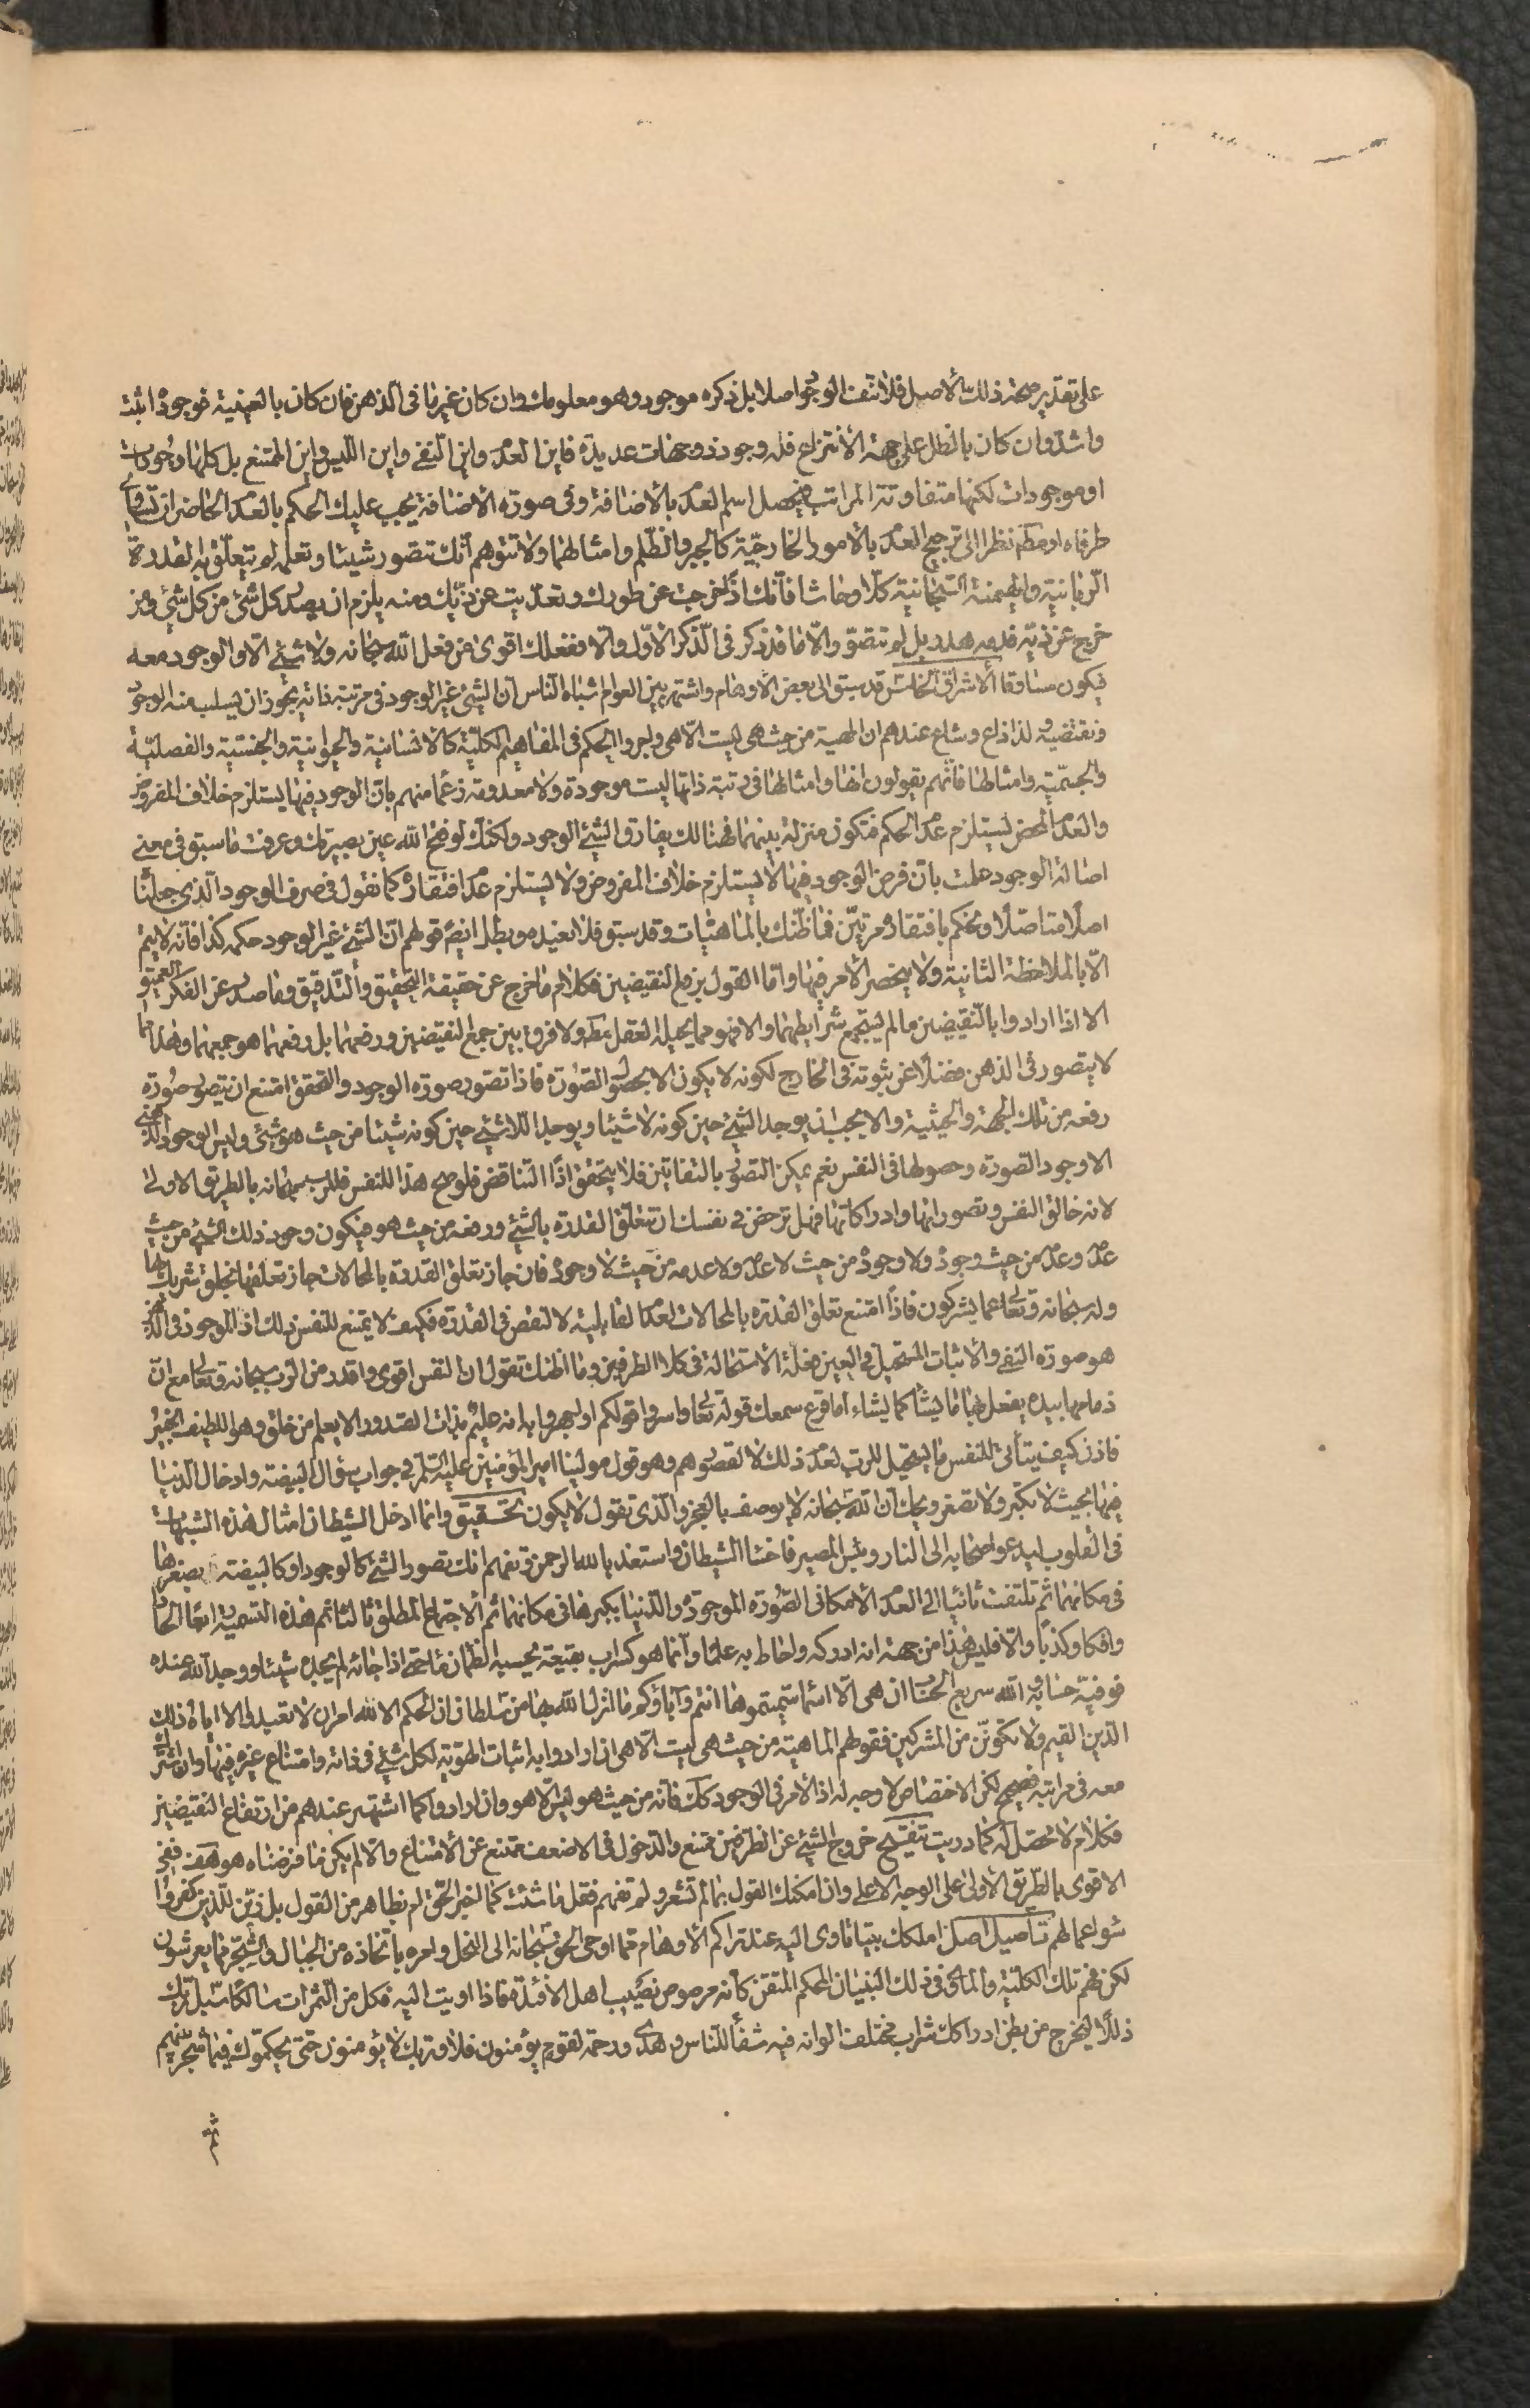 على تقدير صحة ذلك الأصل فلا تنف الوجود اصلا بل ذكره موجود وهو معلومك وان كان غيرنا فى الذهن فان كان بالعينية فوجود اثبت
واشد وان كان بالظل على جهة الأنتزاع فله وجود ذو جهات عديدة فاين العدم واين النفى واين الليس واين الممتنع بل كلها وجودات
او موجودات لكنها متفاوتة المراتب فيحصل اسم العدم بالأضافة وفى صورة الاضافة يجب عليك الحكم بالعدم الخاص ان تساوى
طرفاه او مطم نظرا الى ترجيح العدم بالأمور الخارجية كالجبر والظلم وامثالهما ولا تتوهم انك تتصور شيئا وتعلمه لم يتعلق به القدرة
الربانية والهيمنة السبحانية كلا وحاشا فانك اذا خرجت عن طورك وتعديت عن زيك ومنه يلزم ان يصدر كل شئ من كل شئ ومن
خرج عن زيه فدمه هدر بل لم تتصور الا ما قد ذكر فى الذكر الأول والا ففعلك اقوى من فعل الله سبحانه ولا شئ الا والوجود معه
فيكون مساوقا الأشراق الخامس قد سبق الى بعض الأوهام واشتهر بين العوام اشباه الناس ان الشئ غير الوجود فى مرتبة ذاته يجوز ان يسلب منه الوجود
ونقيضه لذا ذاع وشاع عندهم ان المهية من حيث هى ليست الا هى واجروا الحكم فى المفاهيم الكلية كالانسانية والحيوانية والجنسية والفصلية
والجسمية وامثالها فانهم يقولون انها وامثالها فى رتبة ذاتها ليست موجودة ولا معدومة زعما منهم بان الوجود فيها يستلزم خلاف المفروض
والعدم المحض يستلزم عدم الحكم فتكون منزلة بينهما فهنالك يفارق الشئ الوجود ولكنك لو فتح الله عين بصيرتك وعرفت ما سبق فى معنى
اصالة الوجود علمت بان فرض الوجود فيها لا يستلزم خلاف المفروض ولا يستلزم عدم افتقاره كما نقول فى صرف الوجود الذى جعلنا
اصلا متاصلا ونحكم بافتقاده مرتين فما ظنك بالماهيات وقد سبق فلا نعيده وبطل ايضا قولهم ان الشئ غير الوجود حكمه كذا فانه لا يتم
الا بالملاحظة الثانية ولا ينحصر الأمر فيها واما القول برفع النقيضين فكلام ما خرج عن حقيقة التحقيق والتدقيق وما صدر عن الفكر العميق
الا اذا ارادوا بالنقيضين ما لم يستجمع شرايطهما والا فهو مما يحيله العقل مط ولا فرق بين جمع النقيضين ورفعهما بل رفعهما هو جمعهما وهذا مما
لا يتصور فى الذهن فضلا عن ثبوته فى الخارج لكونه لا يكون الا بحصول الصورة فاذا تصور صورة الوجود والتحقق امتنع ان يتصور صورة
رفعه من تلك الجهة والحيثية والا يجب ان يوجد الشئ حين كونه لا شيئا ويوجد اللاشئ حين كونه شيئا من حيث هو شئ وليس الوجود الذهنى
الا وجود الصورة وحصولها فى النفس نعم يمكن التصور بالتفاتين فلا يتحقق اذا التناقض فلو صح هذا للنفس فللرب سبحانه بالطريق الاولى
لانه خالق النفس وتصوراتها وادراكاتها فهل ترخص فى نفسك ان تتعلق القدرة بالشئ ورفعه من حيث هو فيكون وجود ذلك الشئ من حيث
عدم وعدم من حيث وجود ولا وجود من حيث لا عدم ولا عدمه من حيث لا وجود فان جاز تعلق القدرة بالمحالات جاز تعلقها بخلق شريك لها
وله سبحانه وتعالى عما يشركون فاذا امتنع تعلق القدرة بالمحالات لعدم القابلية لا لنقص فى القدرة فكيف لا يمتنع للنفس ذلك اذ الموجود فى الذهن
هو صورة النفى والأثبات المستحيل فى العين فعلة الأستحالة فى كلا الطرفين وما اظنك تقول ان النفس اقوى واقدر من الرب سبحانه وتعالى مع ان
زمامها بيده يفعل بها ما يشاء كما يشاء اما قرع سمعك قوله تعالى واسروا قولكم او اجهروا به انه عليم بذات الصدور الا يعلم من خلق وهو اللطيف الخبير
فاذن كيف يتأتى للنفس ما يستحيل للرب لعدم ذلك لا لقصور هم وهو قول مولينا امير المؤمنين عليه السلم فى جواب سؤال البيضة وادخال الدنيا
فيها بحيث لا تكبر ولا تصغر ويحك ان الله سبحانه لا يوصف بالعجز والذى تقول لا يكون تحقيق وانما ادخل الشيطان امثال هذه الشبهات
فى القلوب ليدعو اصحابه الى النار وبئس المصير فاخسأ الشيطان واستعذ بالله الرحمن وتفهم انك تصور الشئ كالوجود او كالبيضة بصغرها
فى مكانهما ثم تلتفت ثانيا الى العدم الأمكانى الصورة الموجودة والدنيا بكبرها فى مكانهما ثم الاجتماع المطلق ثالثا ثم هذه التسمية اسما الحادا
وافكا وكذبا والا فليس هذا من جهة انه ادركه واحاط به علما وانما هو كسراب بقيعة يحسبه الظمان ماء حتى اذا جائه لم يجده شيئا ووجد الله عنده
فوفيه حسابه والله سريع الحساب ان هى الا اسماء سميتموها انتم وآباؤكم ما انزل الله بها من سلطان ان الحكم الا لله امر ان لا تعبدوا الا اياه ذلك
الدين القيم ولا تكونن من المشركين فقولهم الماهية من حيث هى ليست الا هى ان ارادوا به اثبات الهوية لكل شئ فى ذاته وامتناع غيره فيها وان اشترك
معه فى مراتبه فصحيح لكن الاختصاص لا وجه له اذ الأمر فى الوجود كك فانه من حيث هو ليس الا هو وان ارادوا كما اشتهر عندهم من ارتفاع النقيضين
فكلام لا محصل له كما دريت تنقيح خروج الشئ عن الطرفين ممتنع والدخول فى الاضعف ممتنع عن الأمتناع والا لم يكن ما فرضناه هو هف ففى
الاقوى بالطريق الأولى على الوجه الاعلى وان امكنك القول بما لم تشعر ولم تفهم فقل ما شئت كما اخبر الحق ام بظاهر من القول بل زين للذين كفروا
سوء اعمالهم تأصيل اصل املكك بيتا تاوى اليه عند تراكم الأوهام مما اوحى الحق سبحانه الى النحل وامره باتخاذه من الجبال والشجر ومما يعرشون
لكن فهم تلك الكلية والمالحق فى ذلك البنيان المحكم المتقن كانه مرصوص نصيب اهل الافئدة فاذا اويت اليه فكل من الثمرات سالكا سبل ربك
ذللا ليخرج من بطن ادراكك شراب مختلف الوانه فيه شفاء للناس وهدى ورحمة لقوم يؤمنون فلا وربك لا يؤمنون حتى يحكموك فيما شجر بينهم
ثم